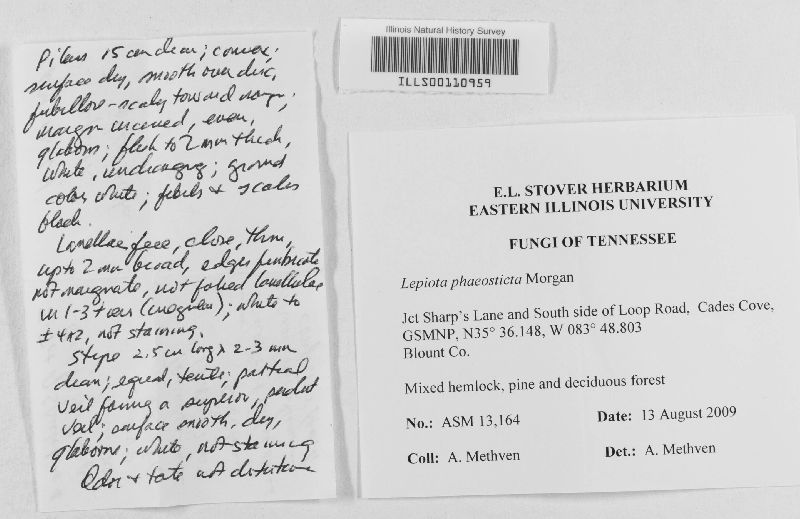 Pileus 15 cm diam; convex;
surface dry, smooth over disc,
fibrillose-scaly toward margin;
margin incurved, even,
glabrous; flesh to 2 mm thick,
white, unchanging; ground
color white; fibrils + scales
black.
Lamellae free, close, thin,
up to 2 mm broad, edges fimbriate
not marginate, not forked lamellulae
in 1-3 tiers (irregular); white to
± 4A2, not staining.
Stipe 2.5 cm long x 2-3 mm
diam; equal, terete; partial
veil forming a superior, pendant
veil; surface smooth, dry,
glabrous; white, not staining
Odor + taste not distinctive
Illinois Natural History Survey
ILLS00110959
E.L. STOVER HERBARIUM
EASTERN ILLINOIS UNIVERSITY
FUNGI OF TENNESSEE
Lepiota phaeosticta Morgan
Jct Sharp's Lane and South side of Loop Road, Cades Cove,
GSMNP, N35° 36.148, W 083° 48.803
Blount Co.
Mixed hemlock, pine and deciduous forest
No.: ASM 13,164 Date: 13 August 2009
Coll: A. Methven Det.: A. Methven